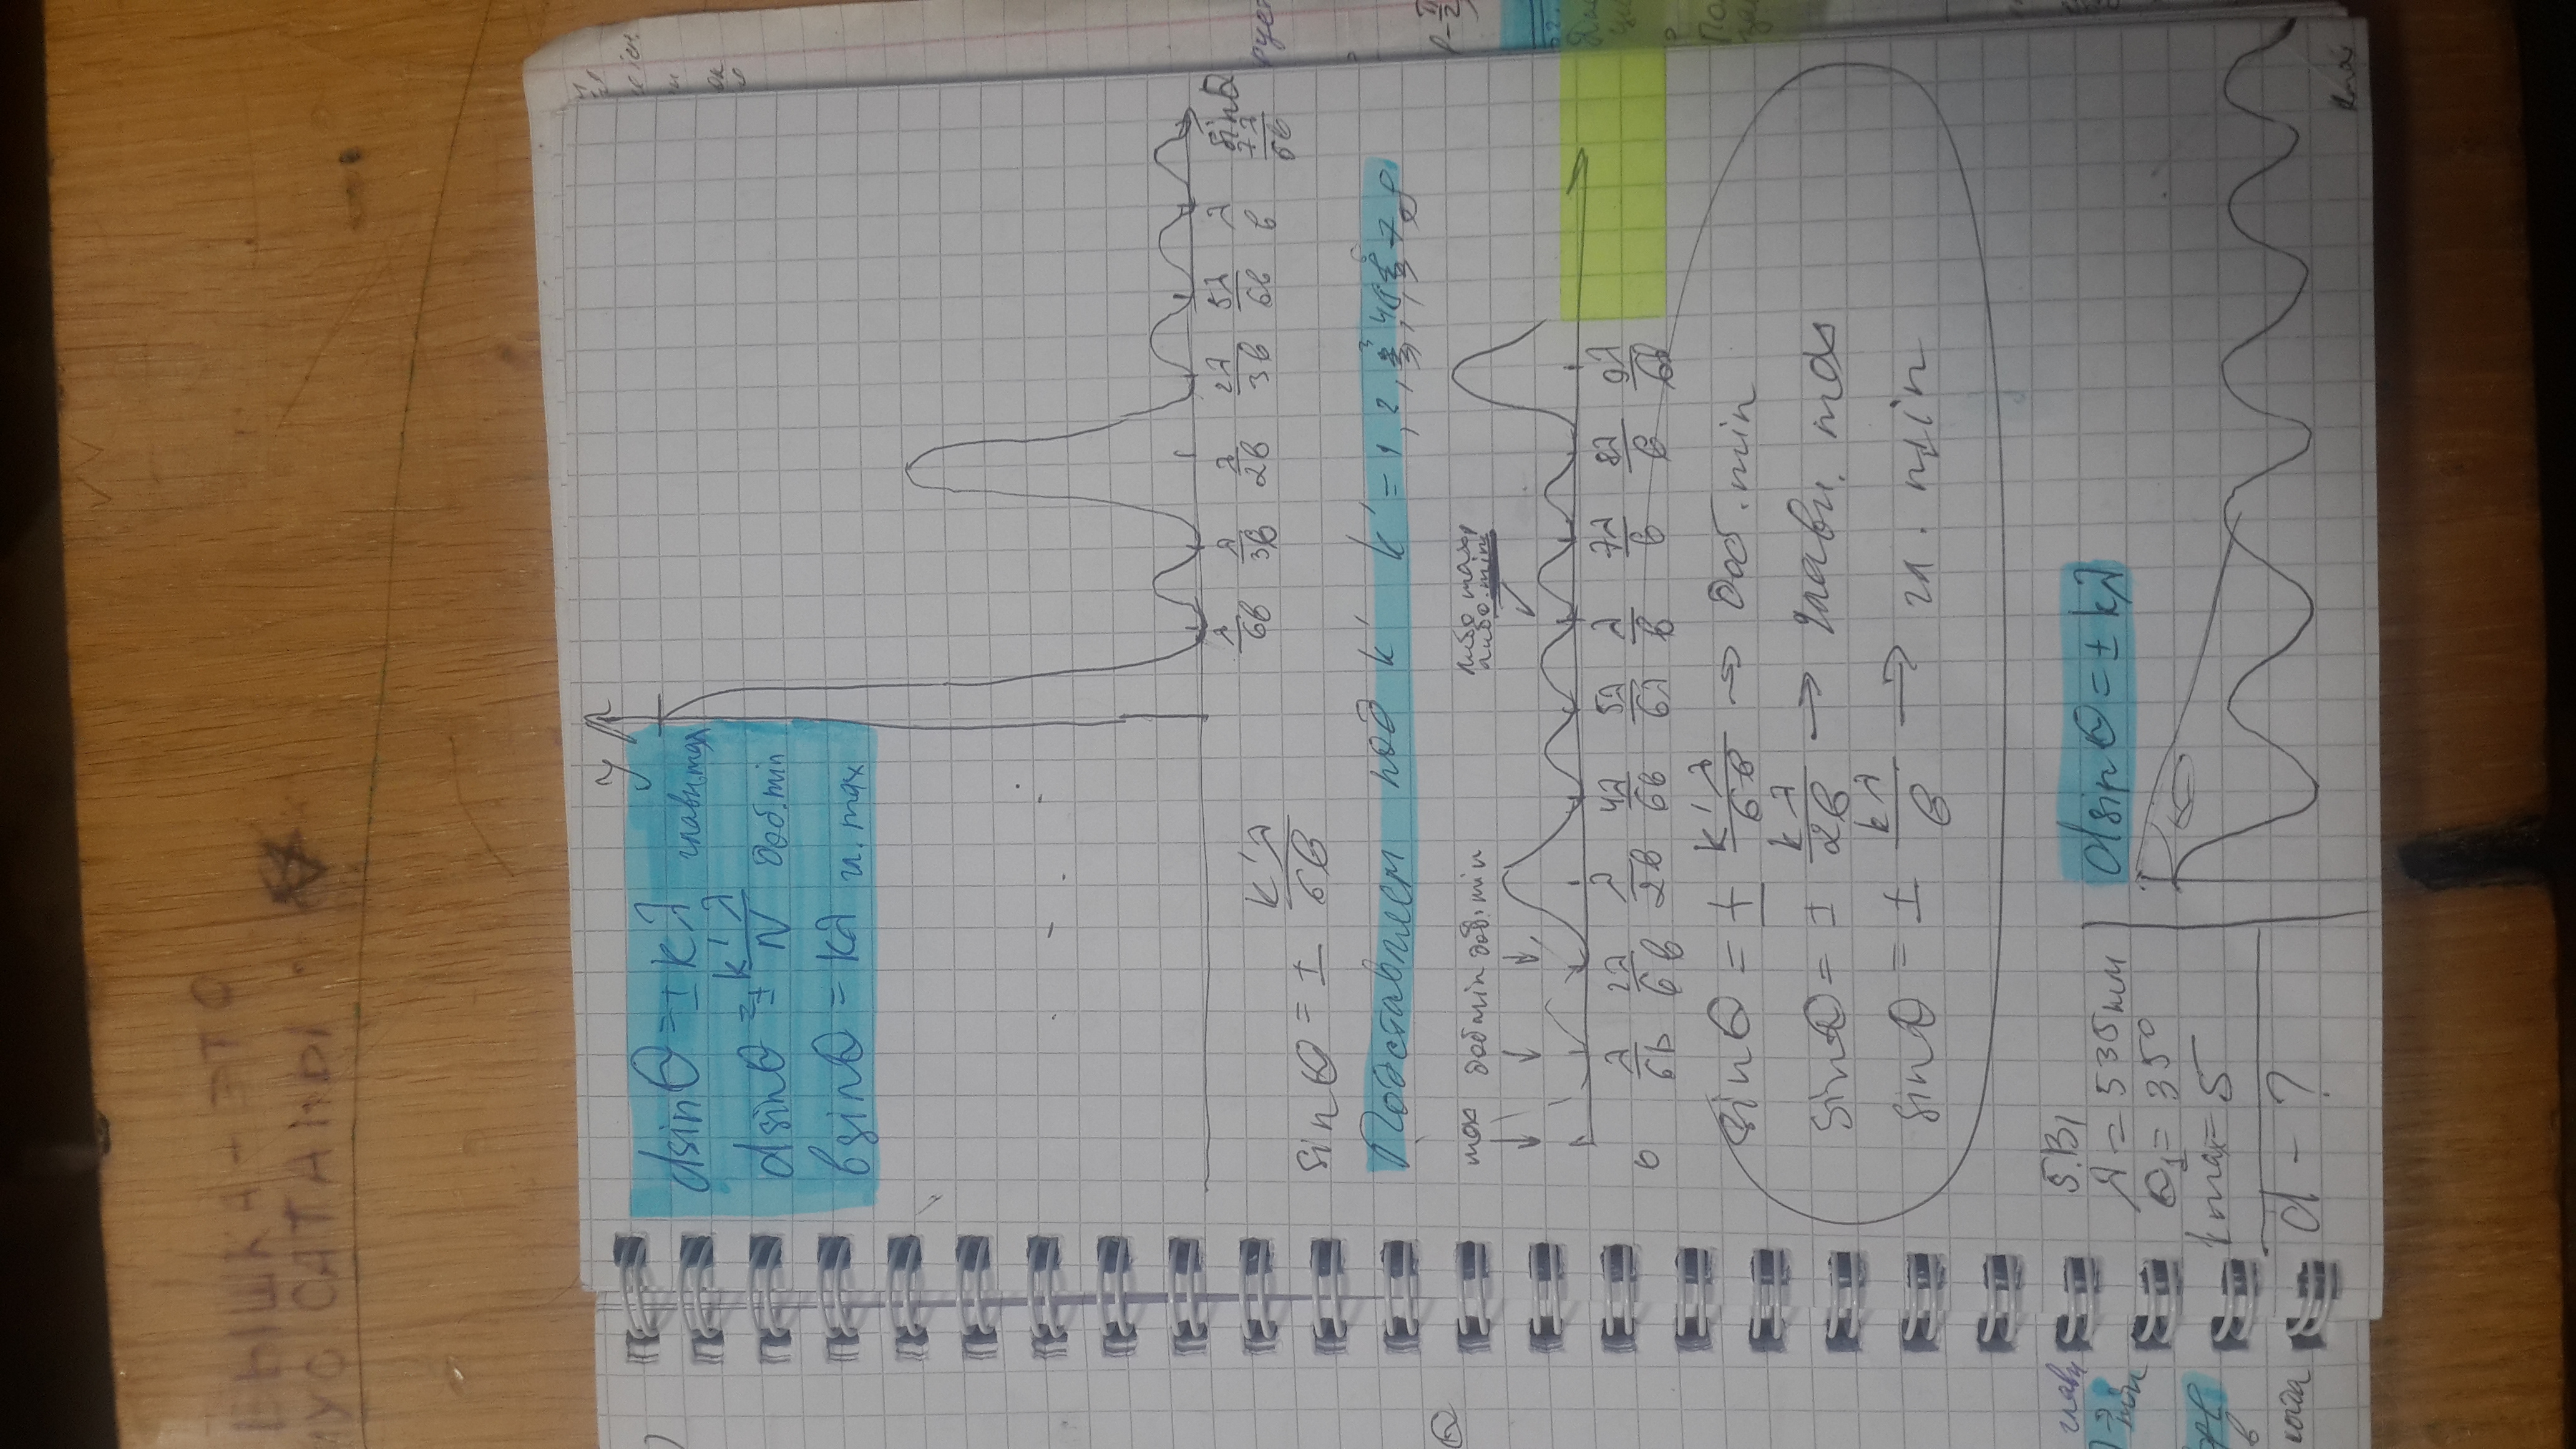 ЕЫШКА - ЭТО
САТАНЫ
y
dsinθ = ± kλ главн. max
dsinθ = ± k'λ/N доб. min
bsinθ = kλ гл. max
λ/6b λ/3b λ/2b 2λ/3b 5λ/6b λ/b 7λ/6b
sinθ
sinθ = ± k'λ/6b
Подставляем под k' k' = 1, 2, 3, 4, 7, 8
max доб min доб. min либо max, либо min
0 λ/6b 2λ/6b λ/2b 4λ/6b 5λ/6λ λ/b 7λ/b 8λ/b 9λ/6b
sinθ = ± k'λ/6b → доб. min
sinθ = ± kλ/2b → главн. max
sinθ = ± kλ/b → гл. min
5.В1
λ = 535 нм
θ1 = 35°
kmax = 5
d - ?
dsinθ = ± kλ
kmax
главн
min
когда